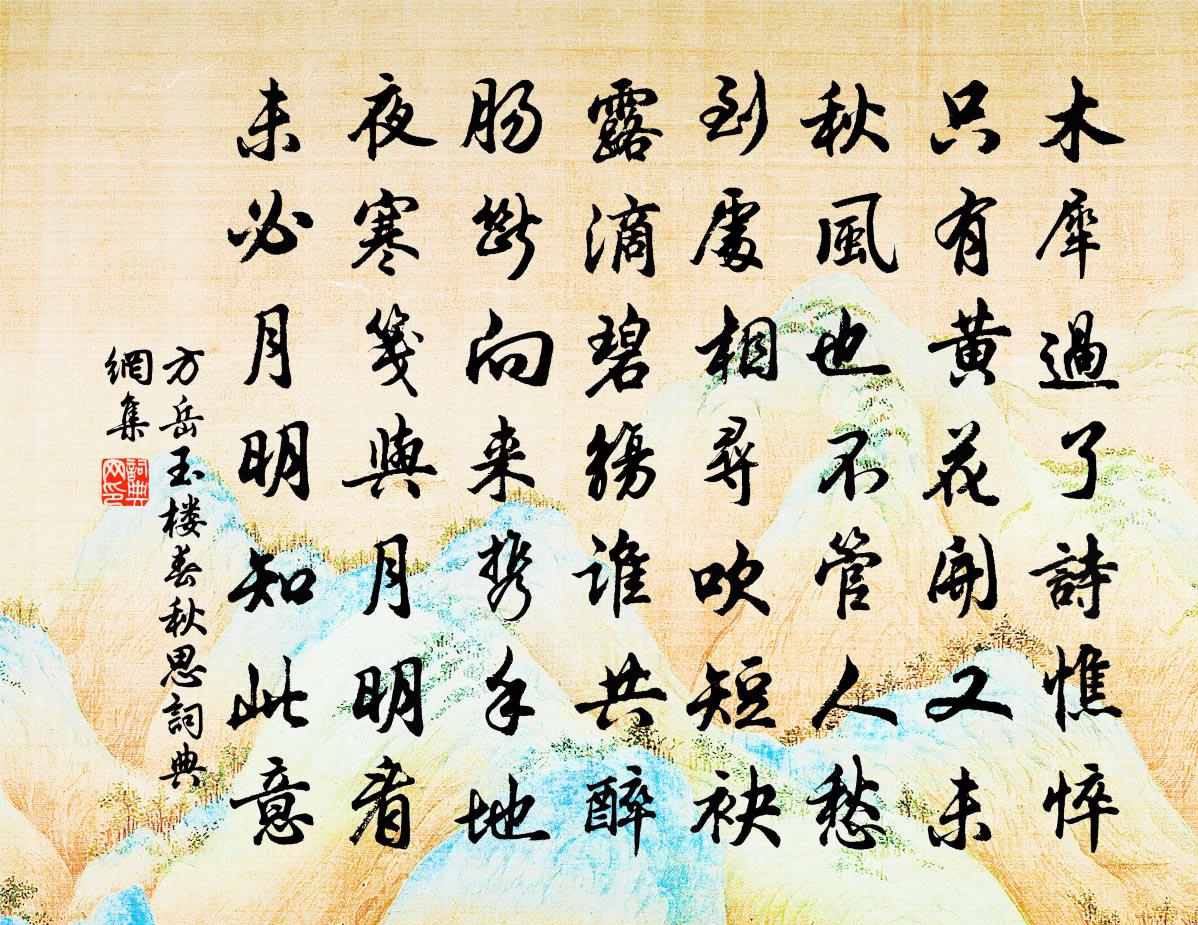 木犀過了詩憔悴
只有黄花開又未
秋風也不管人愁
到處相尋吹短袂
露滴碧觴誰共醉
肠斷向来携手地
夜寒箋與月明看
未必月明知此意
方岳玉楼春秋思詞典
網集
詞典网印